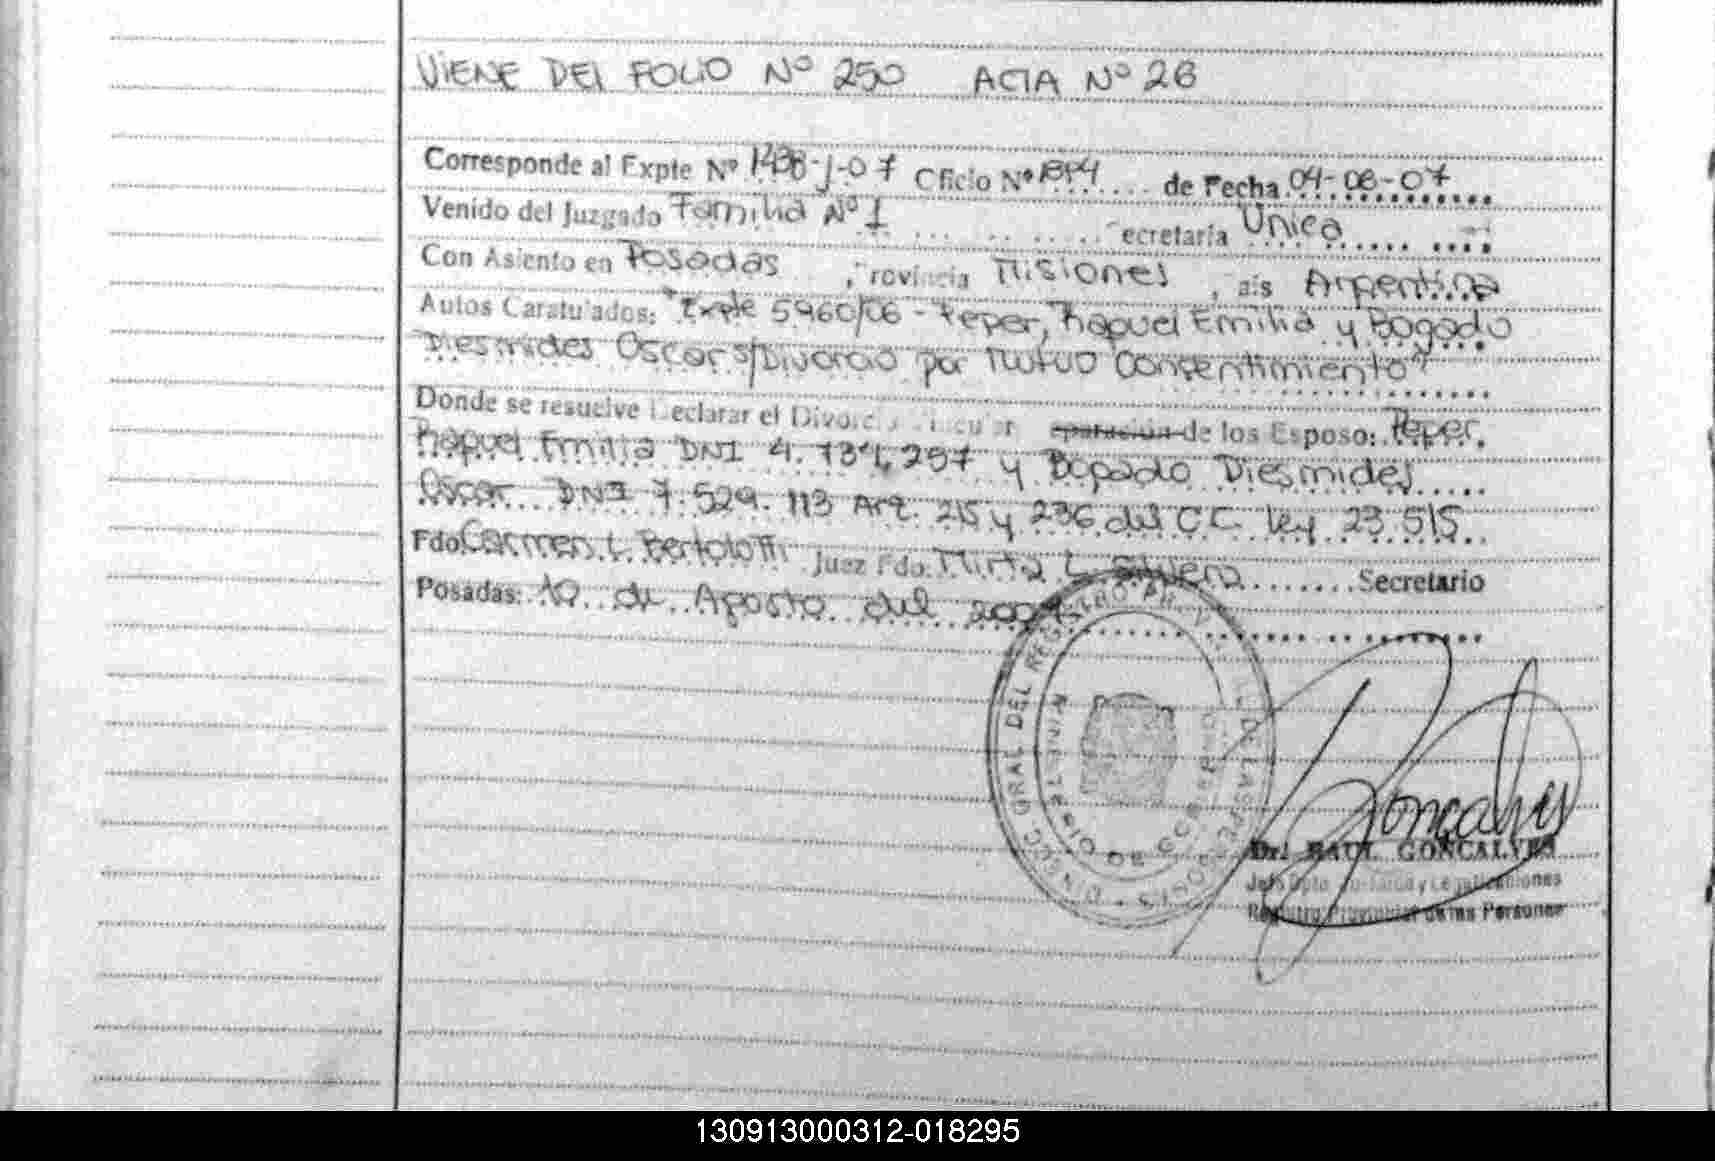 VIENE DEL FOLIO Nº 250 ACTA Nº 26
Corresponde al Expte Nº J-07 Oficio Nº de Fecha 04-06-07
Venido del Juzgado Familia Nº 1 Secretaria Unica
Con Asiento en Posadas, Provincia Misiones, País Argentina
Autos Caratulados: "Expte 5960/06 - Peper, Raquel Emilia y Bogado
Diesmides Oscar s/Divorcio por Mutuo Consentimiento"
Donde se resuelve Declarar el Divorcio Vincular eparación de los Esposo: Peper
Raquel Emilia DNI 4.734,257 y Bogado Diesmides
Oscar DNI 7.529.113 Art. 215 y 236 del C.C. ley 23.515
Fdo Carmen L. Bertolotti Juez Fdo. Mirta L. Secretario
Posadas: 10 de Agosto del 2007
Dr. RAUL GONCALVES
Jefe Dpto y Legalizaciones
Registro Provincial de las Personas
130913000312-018295